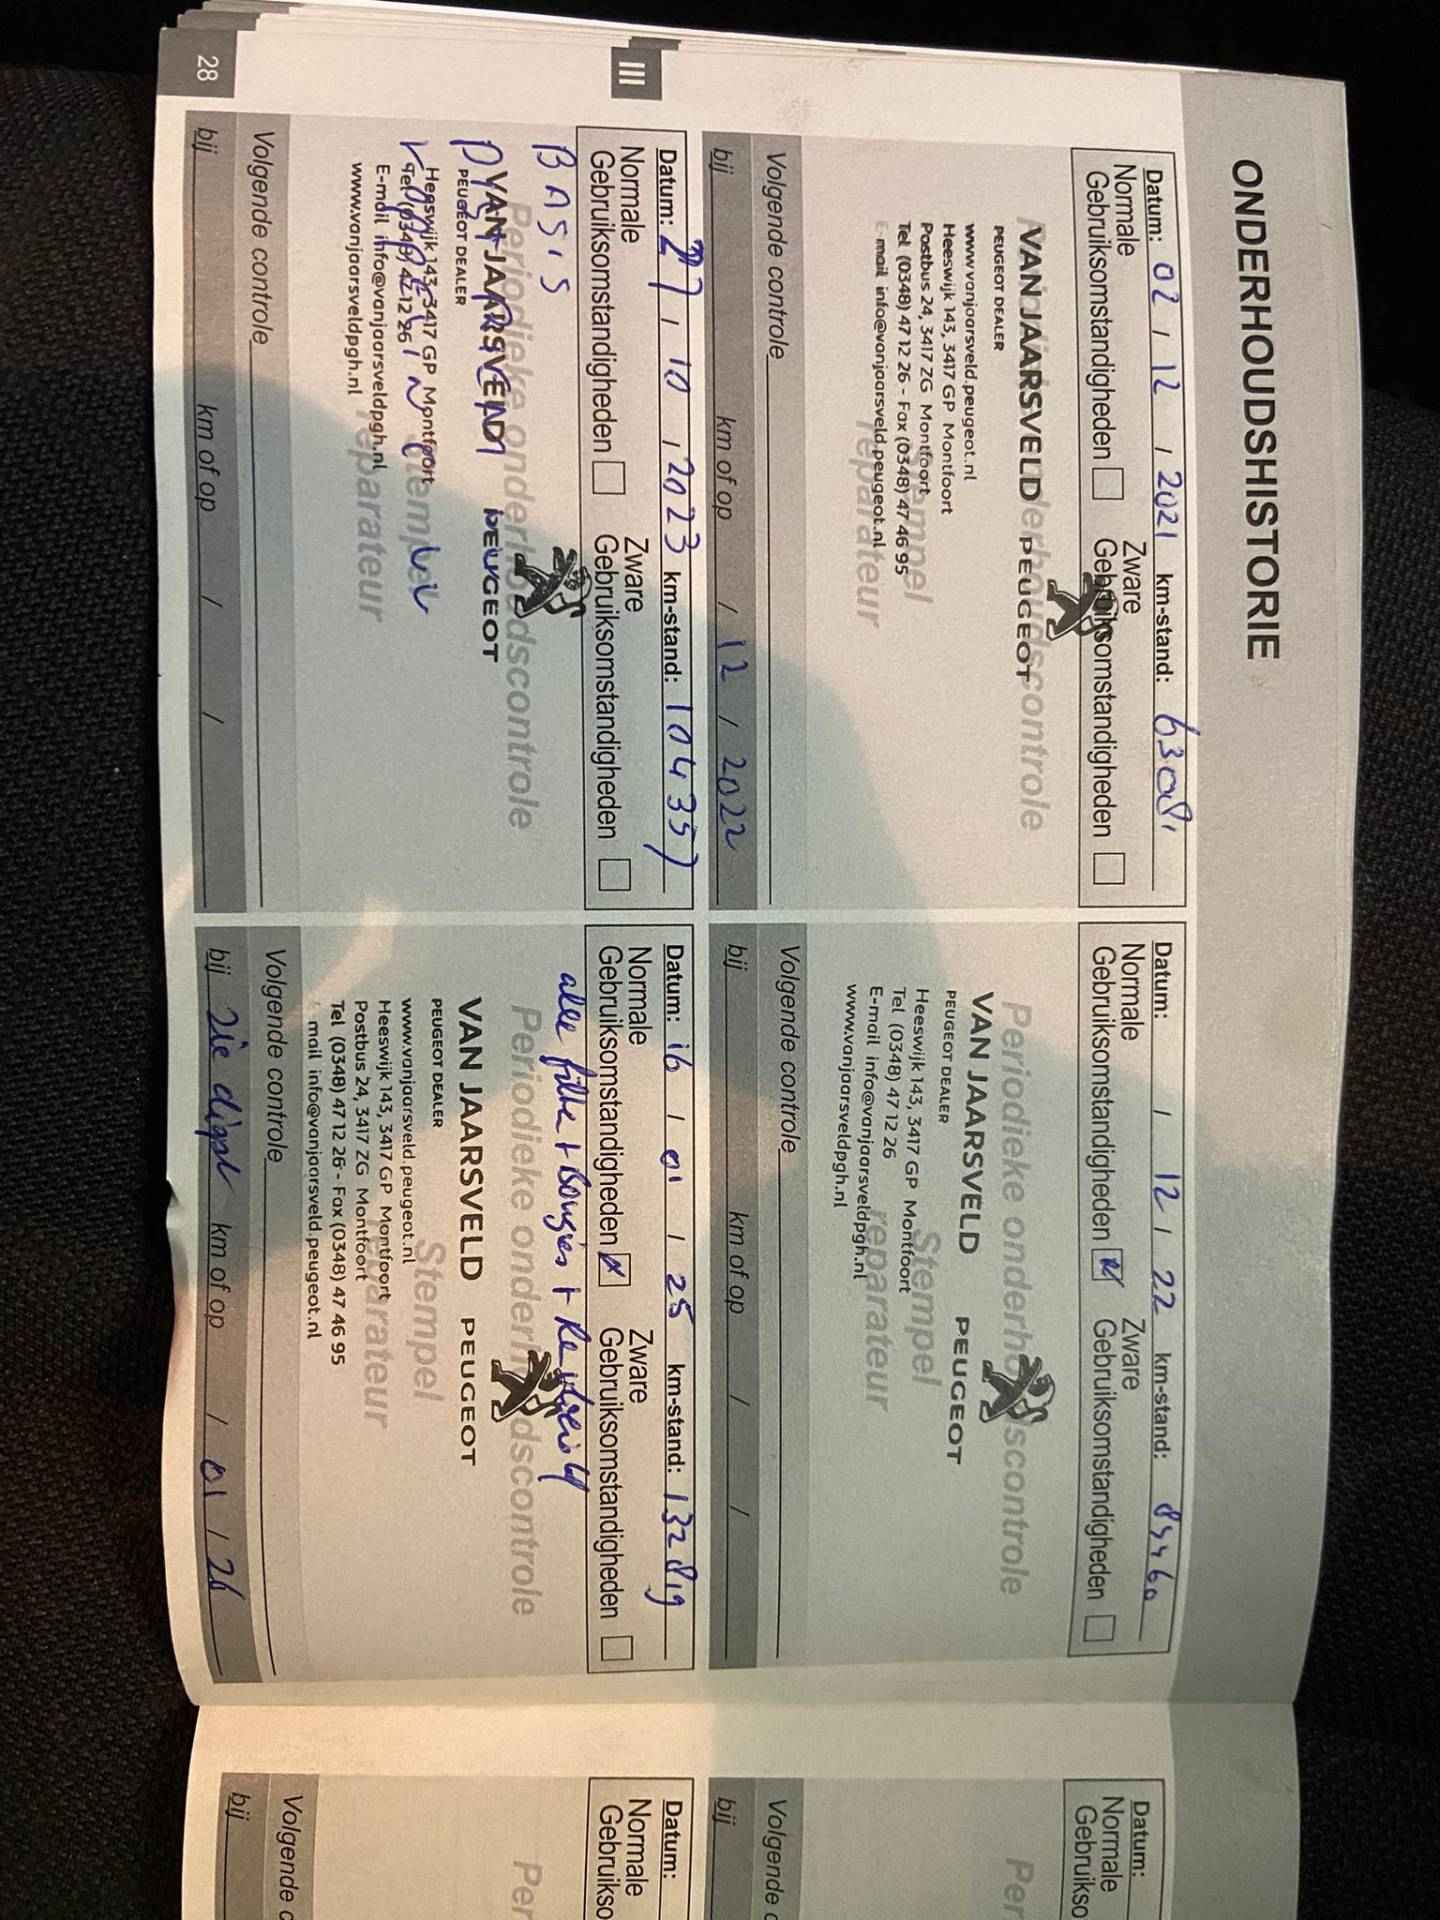 ONDERHOUDSHISTORIE
Datum: 02 / 12 / 2021 km-stand: 63081
Normale Zware
Gebruiksomstandigheden Gebruiksomstandigheden
Periodieke onderhoudscontrole
VAN JAARSVELD PEUGEOT
PEUGEOT DEALER
www.vanjaarsveld.peugeot.nl
Heeswijk 143, 3417 GP Montfoort
Postbus 24, 3417 ZG Montfoort
Stempel
Tel (0348) 47 12 26 - Fax (0348) 47 46 95
E-mail info@vanjaarsveld.peugeot.nl
reparateur
Volgende controle
bij km of op / 12 / 2022
Datum: / 12 / 22 km-stand: 85460
Normale Zware
Gebruiksomstandigheden Gebruiksomstandigheden
Periodieke onderhoudscontrole
VAN JAARSVELD PEUGEOT
PEUGEOT DEALER
Stempel
Heeswijk 143, 3417 GP Montfoort
Tel (0348) 47 12 26
E-mail info@vanjaarsveldpgh.nl
reparateur
www.vanjaarsveldpgh.nl
Volgende controle
bij km of op / /
III
Datum: 27 / 10 / 2023 km-stand: 104357
Normale Zware
Gebruiksomstandigheden Gebruiksomstandigheden
BASIS
Periodieke onderhoudscontrole
VAN JAARSVELD PEUGEOT
PEUGEOT DEALER
Heeswijk 143, 3417 GP Montfoort
Stempel
Tel (0348) 47 12 26
E-mail info@vanjaarsveldpgh.nl
reparateur
www.vanjaarsveldpgh.nl
Volgende controle
bij km of op / /
28
Datum: 16 / 01 / 25 km-stand: 132819
Normale Zware
Gebruiksomstandigheden Gebruiksomstandigheden
alle filter + Bougies +
Periodieke onderhoudscontrole
VAN JAARSVELD PEUGEOT
PEUGEOT DEALER
Stempel
www.vanjaarsveld.peugeot.nl
Heeswijk 143, 3417 GP Montfoort
reparateur
Postbus 24, 3417 ZG Montfoort
Tel (0348) 47 12 26 - Fax (0348) 47 46 95
mail info@vanjaarsveld.peugeot.nl
Volgende controle
bij Zie digital km of op / 01 / 26
Datum:
Normale
Gebruikso
Per
Volgende c
bij
Datum:
Normale
Gebruikso
Per
Volgende c
bij